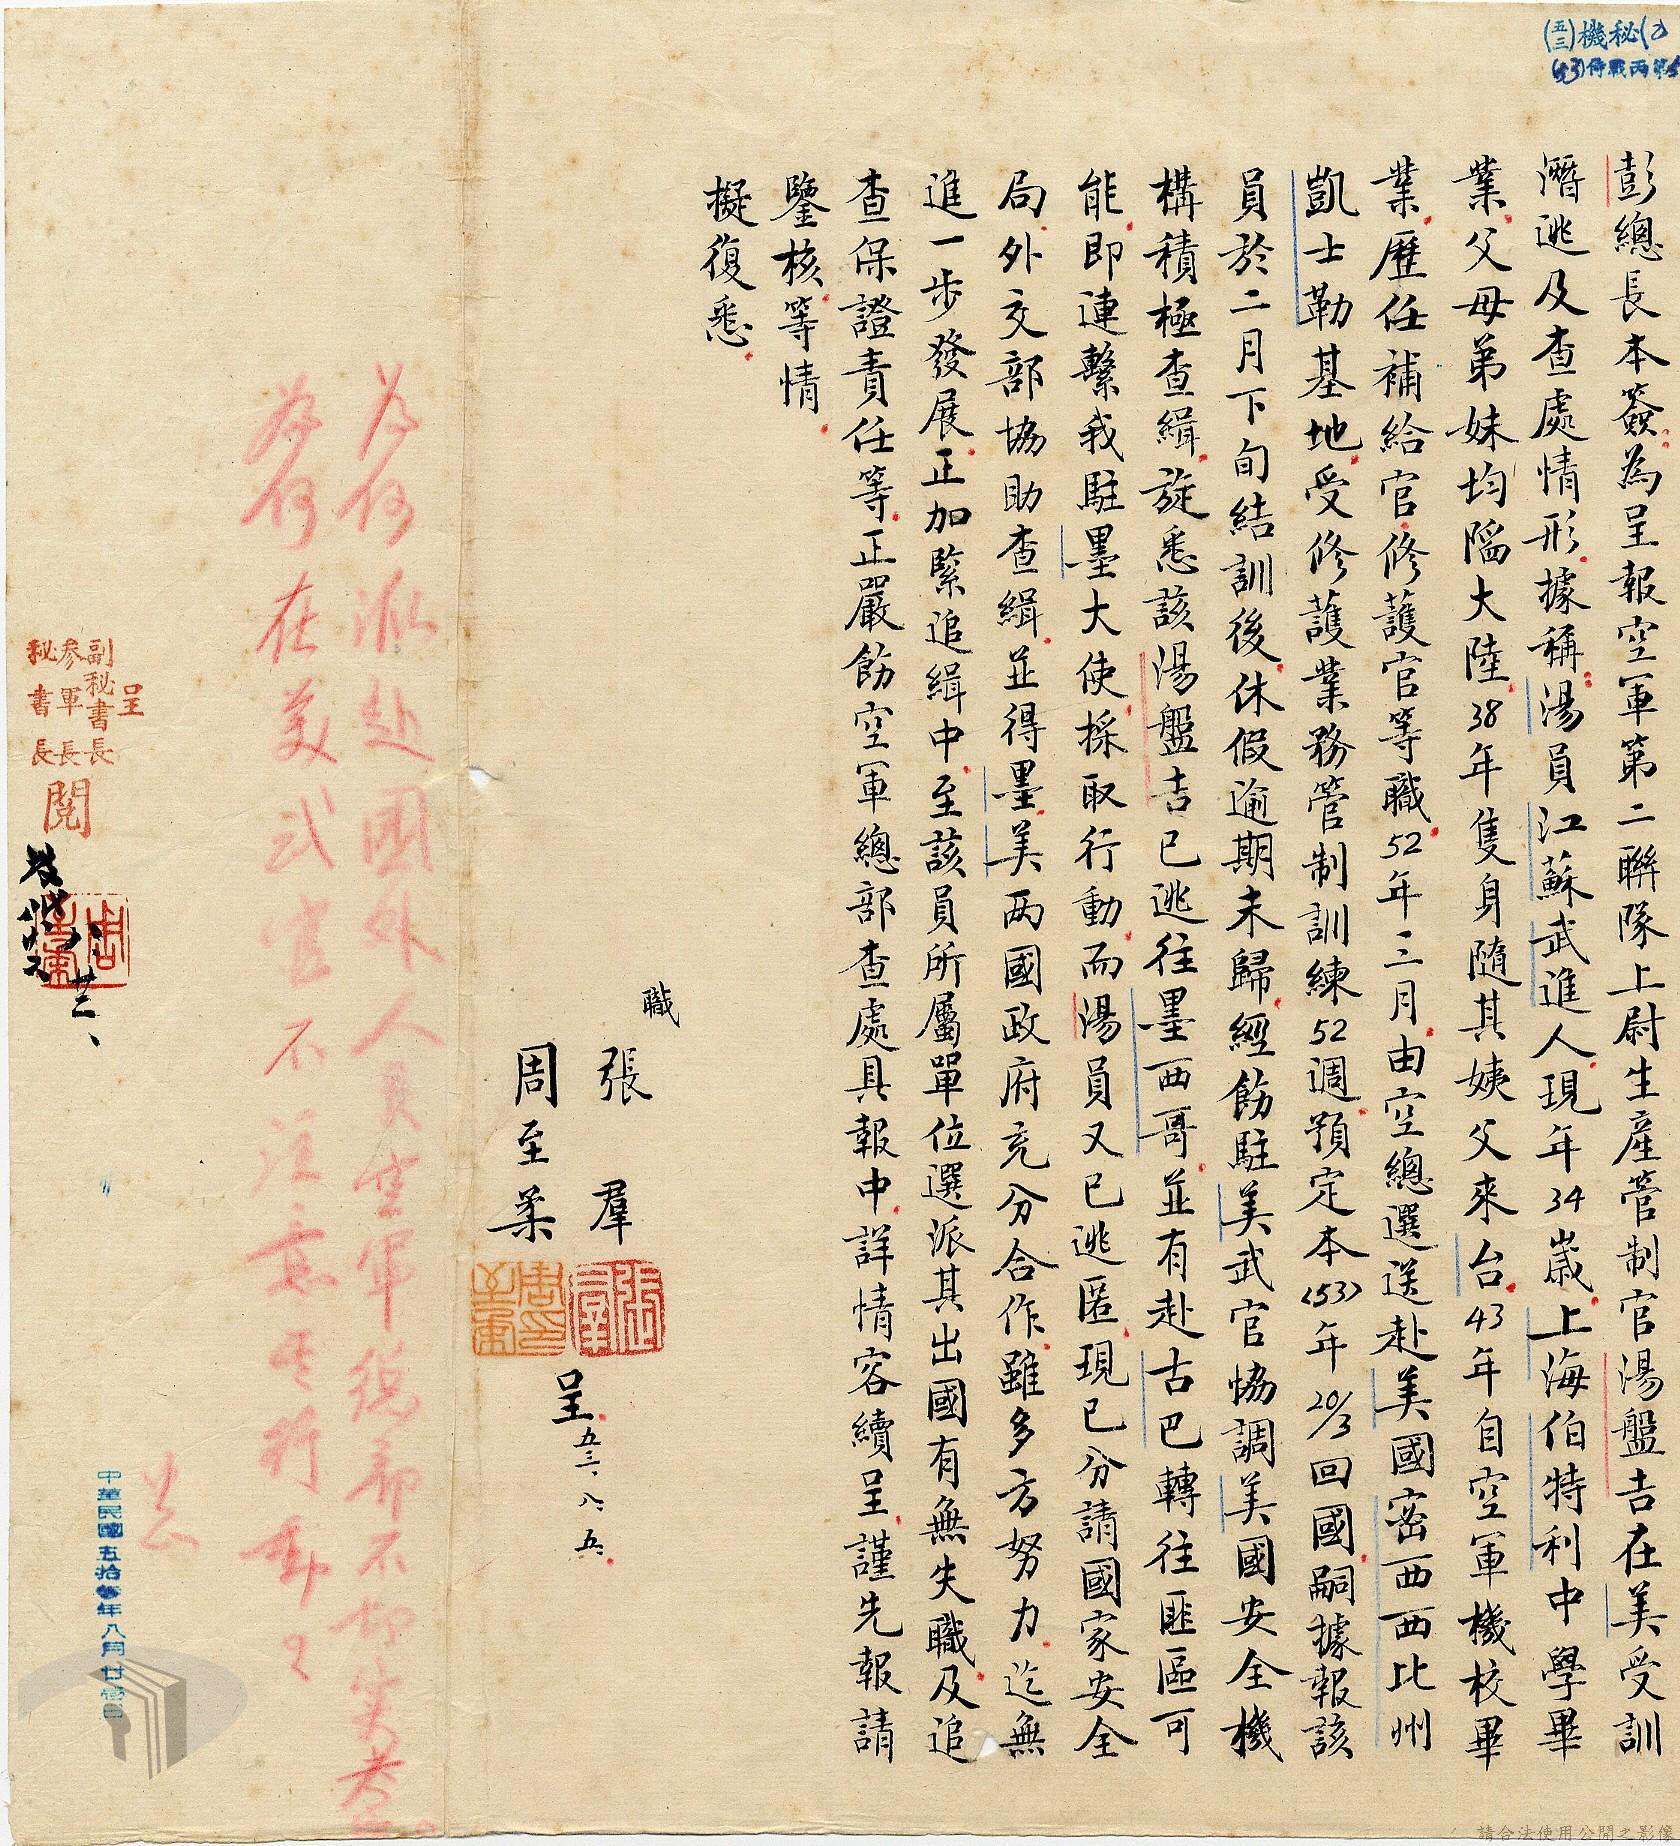 機秘(乙)
(五三)
(53)侍戰丙第
彭總長本簽：為呈報空軍第二聯隊上尉生產管制官湯盤吉在美受訓
潛逃及查處情形。據稱：湯員江蘇武進人，現年34歲。上海伯特利中學畢
業。父母弟妹均陷大陸，38年隻身隨其姨父來台。43年自空軍機校畢
業，歷任補給官、修護官等職。52年三月，由空總選送赴美國密西西比州
凱士勒基地，受修護業務管制訓練52週，預定本(53)年20/3回國。嗣據報該
員於二月下旬結訓後，休假逾期未歸，經飭駐美武官協調美國安全機
構積極查緝。旋悉該湯盤吉已逃往墨西哥，並有赴古巴轉往匪區可
能，即連繫我駐墨大使採取行動，而湯員又已逃匿。現已分請國家安全
局、外交部協助查緝，並得墨、美兩國政府充分合作，雖多方努力，迄無
進一步發展，正加緊追緝中。至該員所屬單位選派其出國有無失職，及追
查保證責任等，正嚴飭空軍總部查處具報中，詳情容續呈，謹先報請
鑒核等情。
擬復悉。
職
張羣
周至柔
呈 五三、八、五
為何派赴國外人員空軍總部不切實考查。
為何在美武官不注意其行動？
呈
副秘書長
參軍長
秘書長
閱
八、廿三、
中華民國五拾叁年八月廿 日
請合法使用公開之影像